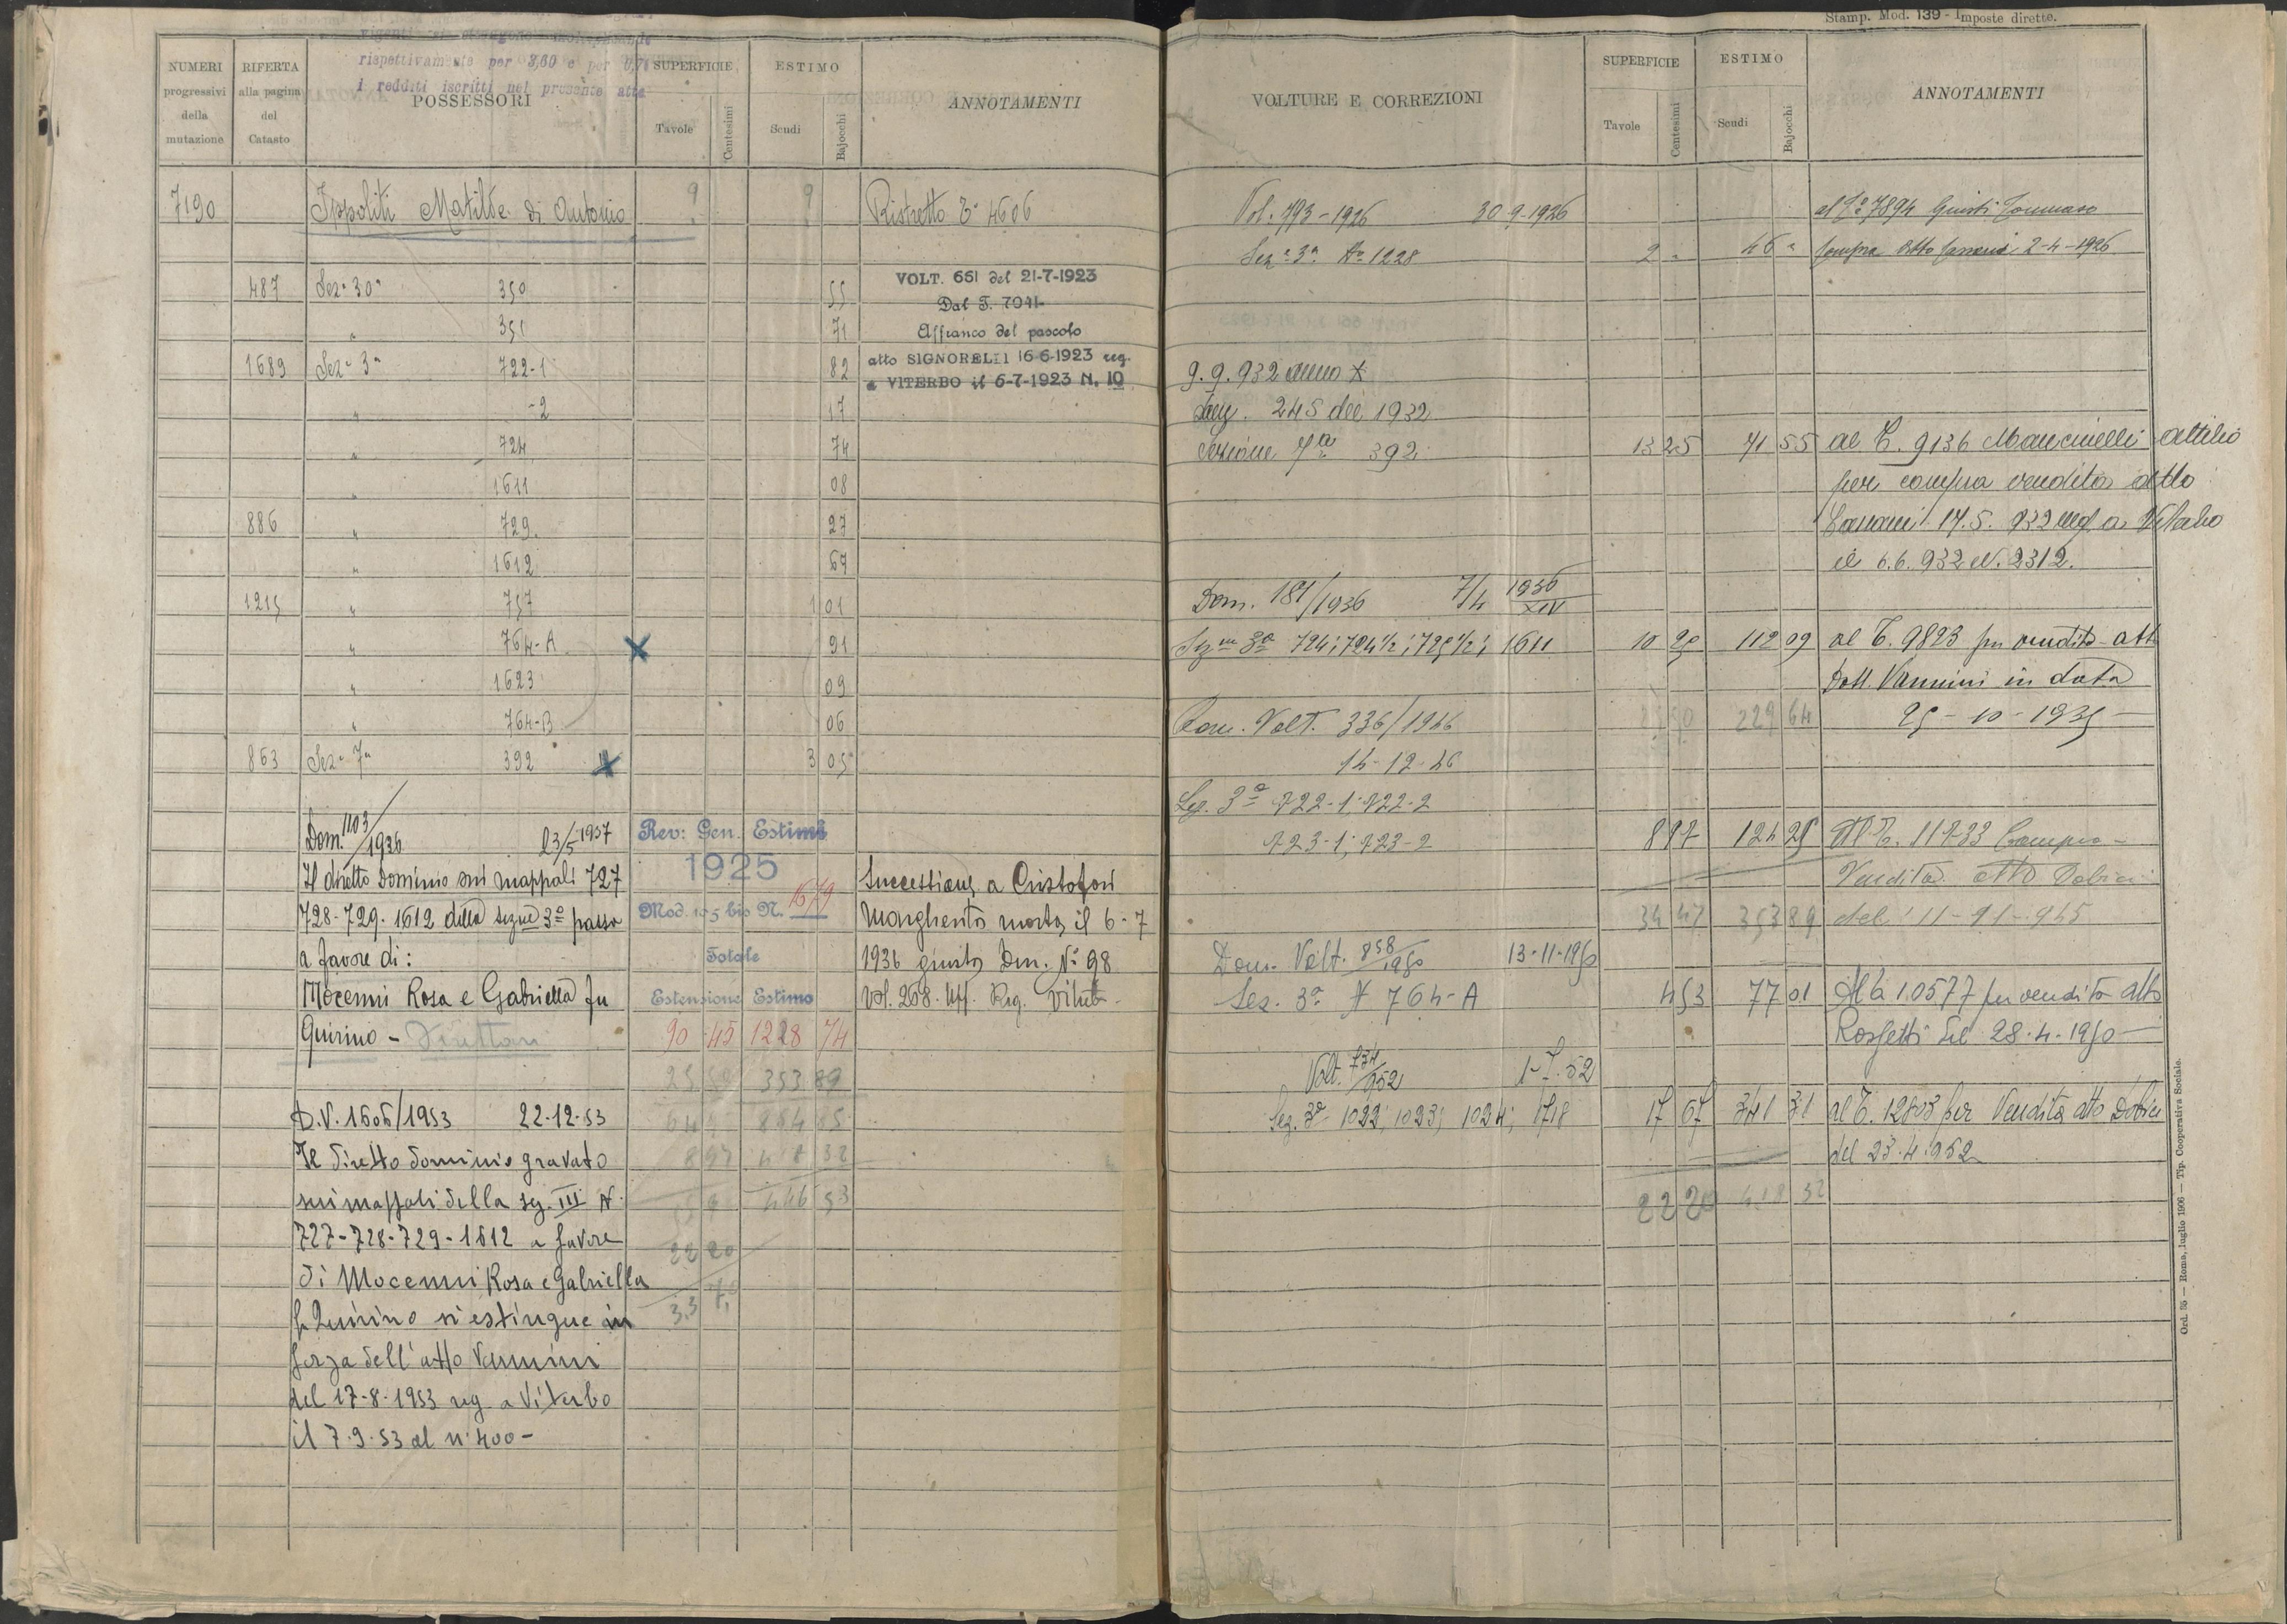 rispettivamente per 3,60 e per
i redditi iscritti nel presente atto
NUMERI progressivi della mutazione
RIFERTA alla pagina del Catasto
POSSESSORI
SUPERFICIE
Tavole
Centesimi
ESTIMO
Scudi
Bajocchi
ANNOTAMENTI
7190 Ippoliti Matilde di Antonio 9 9 Ristretto T° 4606
487 Sez. 30ª 350 55 VOLT. 661 del 21-7-1923
Dal T. 7041
" 351 71 Affranco del pascolo
1689 Sez. 3ª 722-1 82 atto SIGNORELLI 16-6-1923 reg.
a VITERBO il 6-7-1923 N. 10
" -2 17
" 724 74
" 1611 08
886 " 729 27
" 1612 67
1215 " 757 1 01
" 764-A X 91
" 1623 09
" 764-B 06
863 Sez. 7ª 392 X 3 05
Dom. 1103/1936 23/5-1937
Il diretto dominio sui mappali 727
728-729-1612 della sezne 3ª passa
a favore di:
Mocenni Rosa e Gabriella fu
Quirino - Direttari
Rev: Gen. Estimi
1925
Mod. 105 bis N. 1679
Totale
Estensione Estimo
90 45 1228 74
353 89
Successione a Cristofori
Margherita morta il 6-7
1936 giusta Den. N° 98
Vol. 268. Uff. Reg. Viterbo
D.V. 1606/1953 22-12-53
Il diretto dominio gravato
sui mappali della sez. III N.
727-728-729-1612 a favore
di Mocenni Rosa e Gabriella
fu Quirino si estingue in
forza dell'atto Vannini
del 17-8-1953 reg. a Viterbo
il 7-9-53 al n. 400-
446 53
22 20
Stamp. Mod. 139 - Imposte dirette.
VOLTURE E CORREZIONI
SUPERFICIE
Tavole
Centesimi
ESTIMO
Scudi
Bajocchi
ANNOTAMENTI
Vol. 793-1926 30-9-1926 al T° 7894 Giusti Tommaso
Sez. 3ª N° 1228 2 - 46 - compra atto 2-4-1926
9.9.932 anno X
245 del 1932
Sezione 7ª 392 13 25 71 55 al T. 9136 Mancinelli Attilio
per compra vendita atto
17.5.932 reg a Viterbo
il 6.6.932 N. 2312.
Dom. 181/1936 7/4 1936 XIV
Sezne 3ª 724; 724½; 725½; 1611 10 25 112 09 al T. 9823 per vendita atto
Dott. Vannini in data
25-10-1935
Dom. Volt. 336/1946 229 64
14-12-46
Sez. 3ª 722-1; 722-2
723-1; 723-2 8 97 124 25 Al T. 11733 Compra-
Vendita atto Dobici
34 47 353 89 del 11-11-945
Dom. Volt. 858/1950 13-11-1950
Sez. 3ª N 764-A 4 53 77 01 Al T. 10577 per vendita atto
Rossetti del 28-4-1950
Volt. 734/952 1-7-52
Sez. 3ª 1022; 1023; 1024; 1718 17 67 341 31 al T. 12803 per Vendita atto Dobici
del 23-4-1952
22 20 418 32
Ord. 35 — Roma, luglio 1906 — Tip. Cooperativa Sociale.